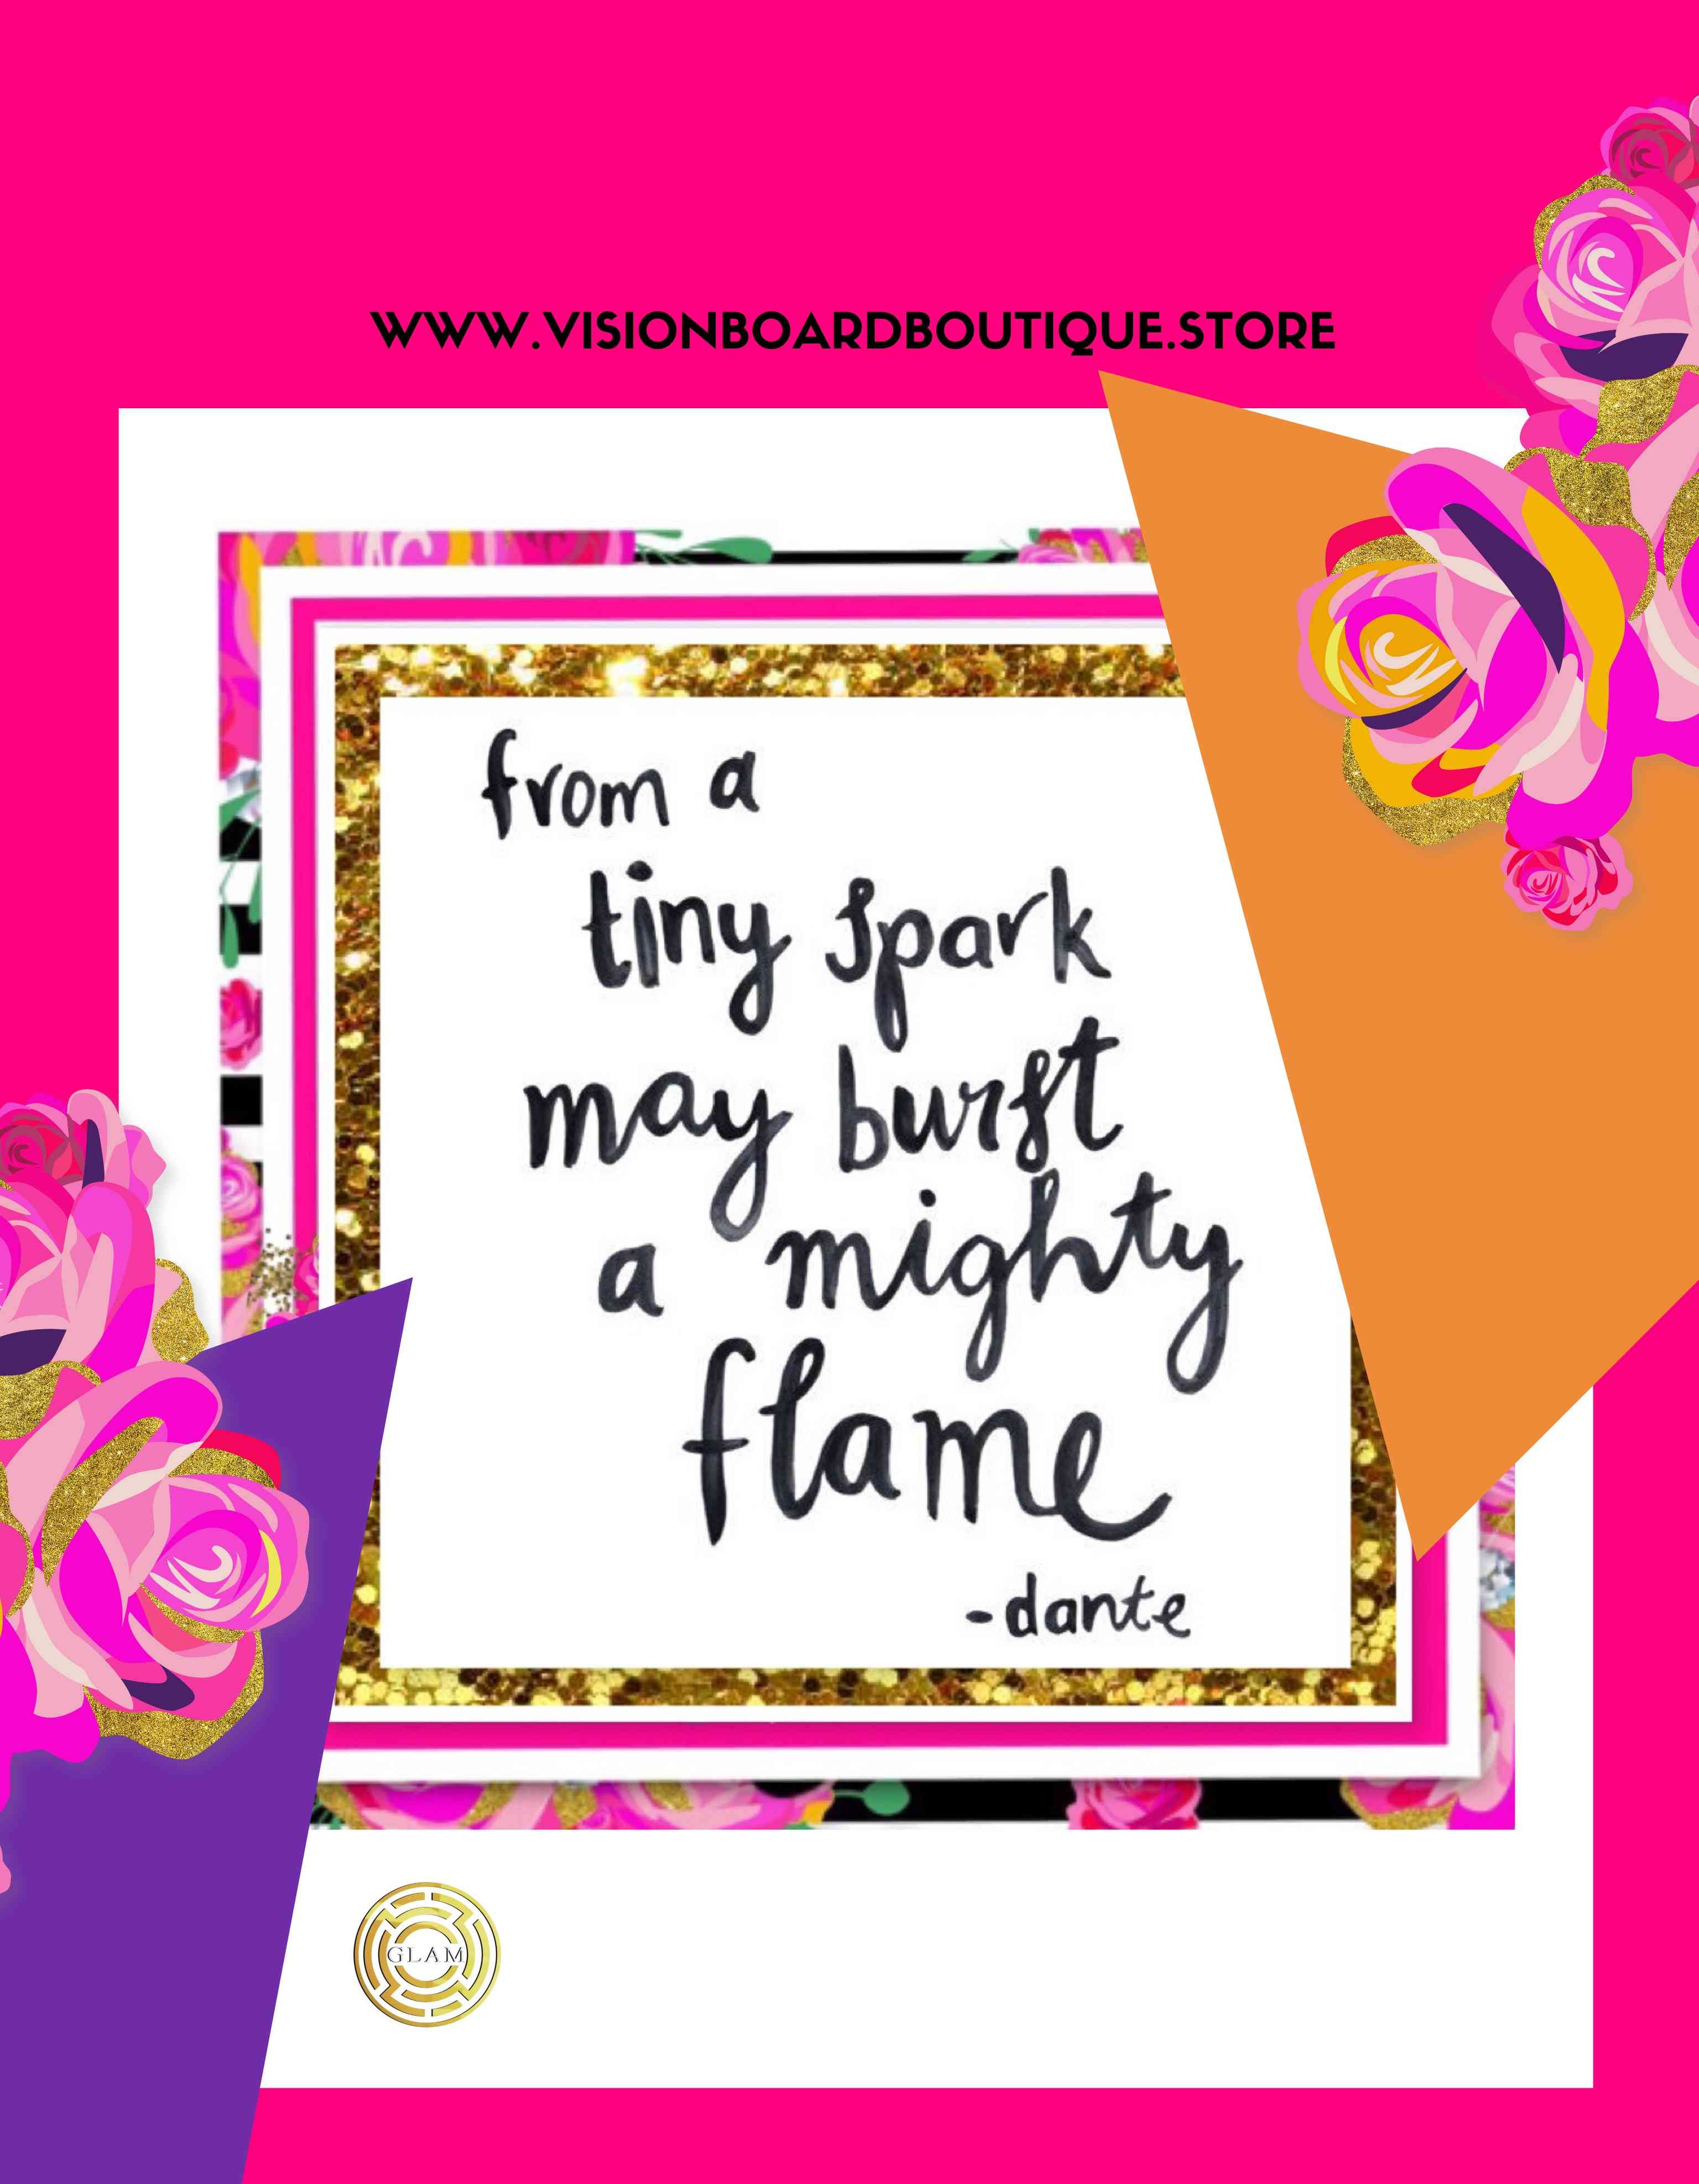 WWW.VISIONBOARDBOUTIQUE.STORE
from a
tiny spark
may burst
a mighty
flame
-dante
GLAM